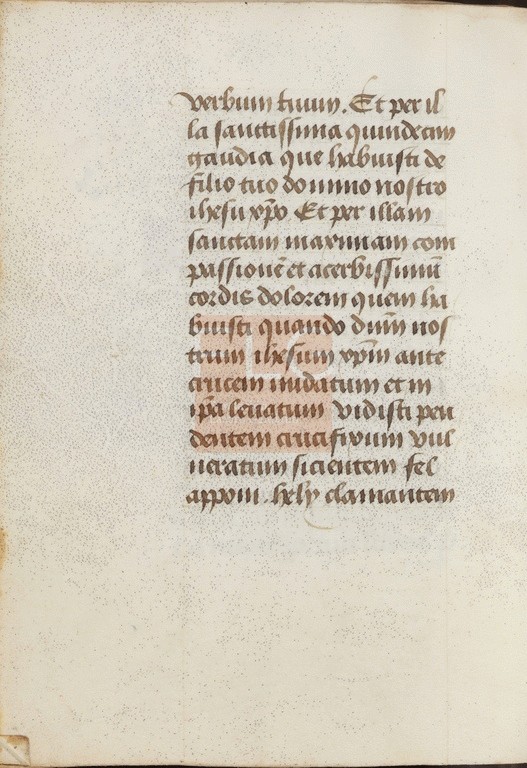 verbum tuum. Et per il
la sanctissima quindecim
gaudia que habuisti de
filio tuo domino nostro
ihesu xp̄o Et per illam
sanctam maximam com
passionē et acerbissimū
cordis dolorem quem ha
buisti quando dn̄m nos
trum ihesum xp̄m ante
crucem nudatum et in
ip̄a leuatum vidisti pen
dentem crucifixum vul
neratum sicientem fel
apponi. hely clamantem